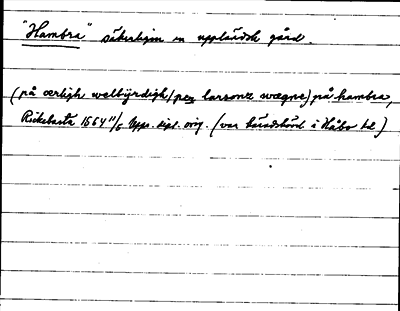 "Hambra" säkerligen en uppländsk gård.
(på ærligh welbÿrdigh/per larsonz wægne) på hambra,
Rickebasta 1664 11/5 Upps. dipl. orig. (var häradshövd i Håbo hd)